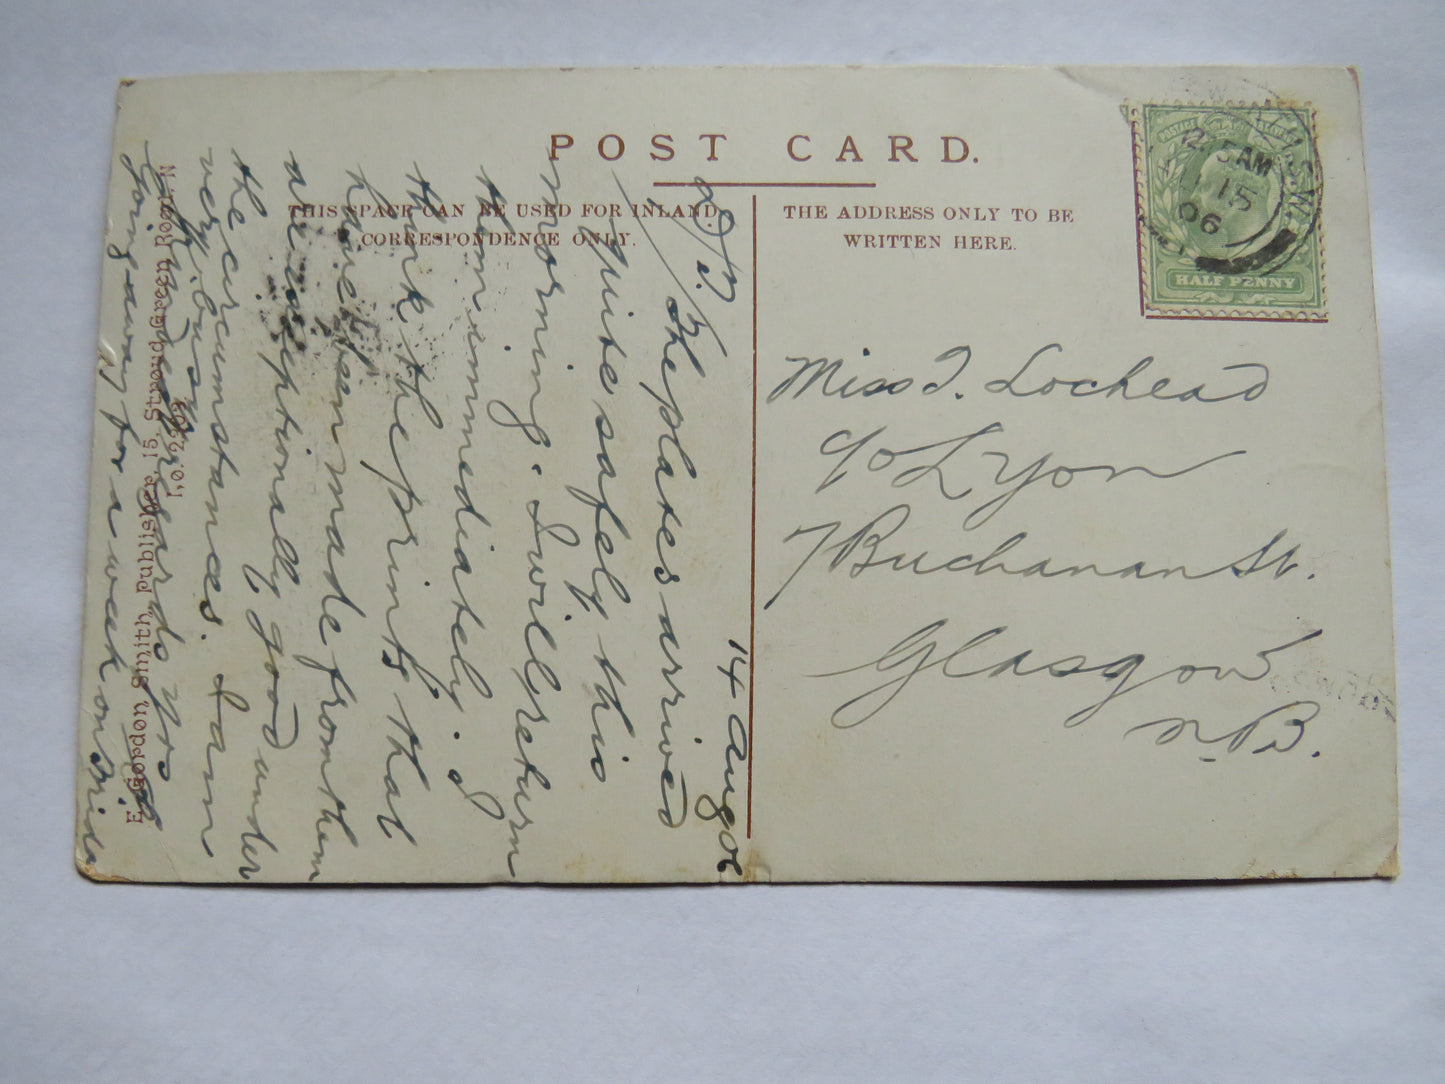 POST CARD.
THIS SPACE CAN BE USED FOR INLAND
CORRESPONDENCE ONLY.
THE ADDRESS ONLY TO BE
WRITTEN HERE.
POSTAGE
HALF PENNY
12.15AM
15
06
S.W.
Miss J. Lochead
c/o Lyon
7 Buchanan St.
Glasgow
N.B.
14 Aug 06
The plates arrived
quite safely this
morning. I will return
them immediately. I
think the prints that
have been made from them
are exceptionally good under
the circumstances. I am
very busy.
Kindest regards yrs
Going away for a week on Frida
E. Gordon Smith, Publisher, 15, Stroud Green Road, N